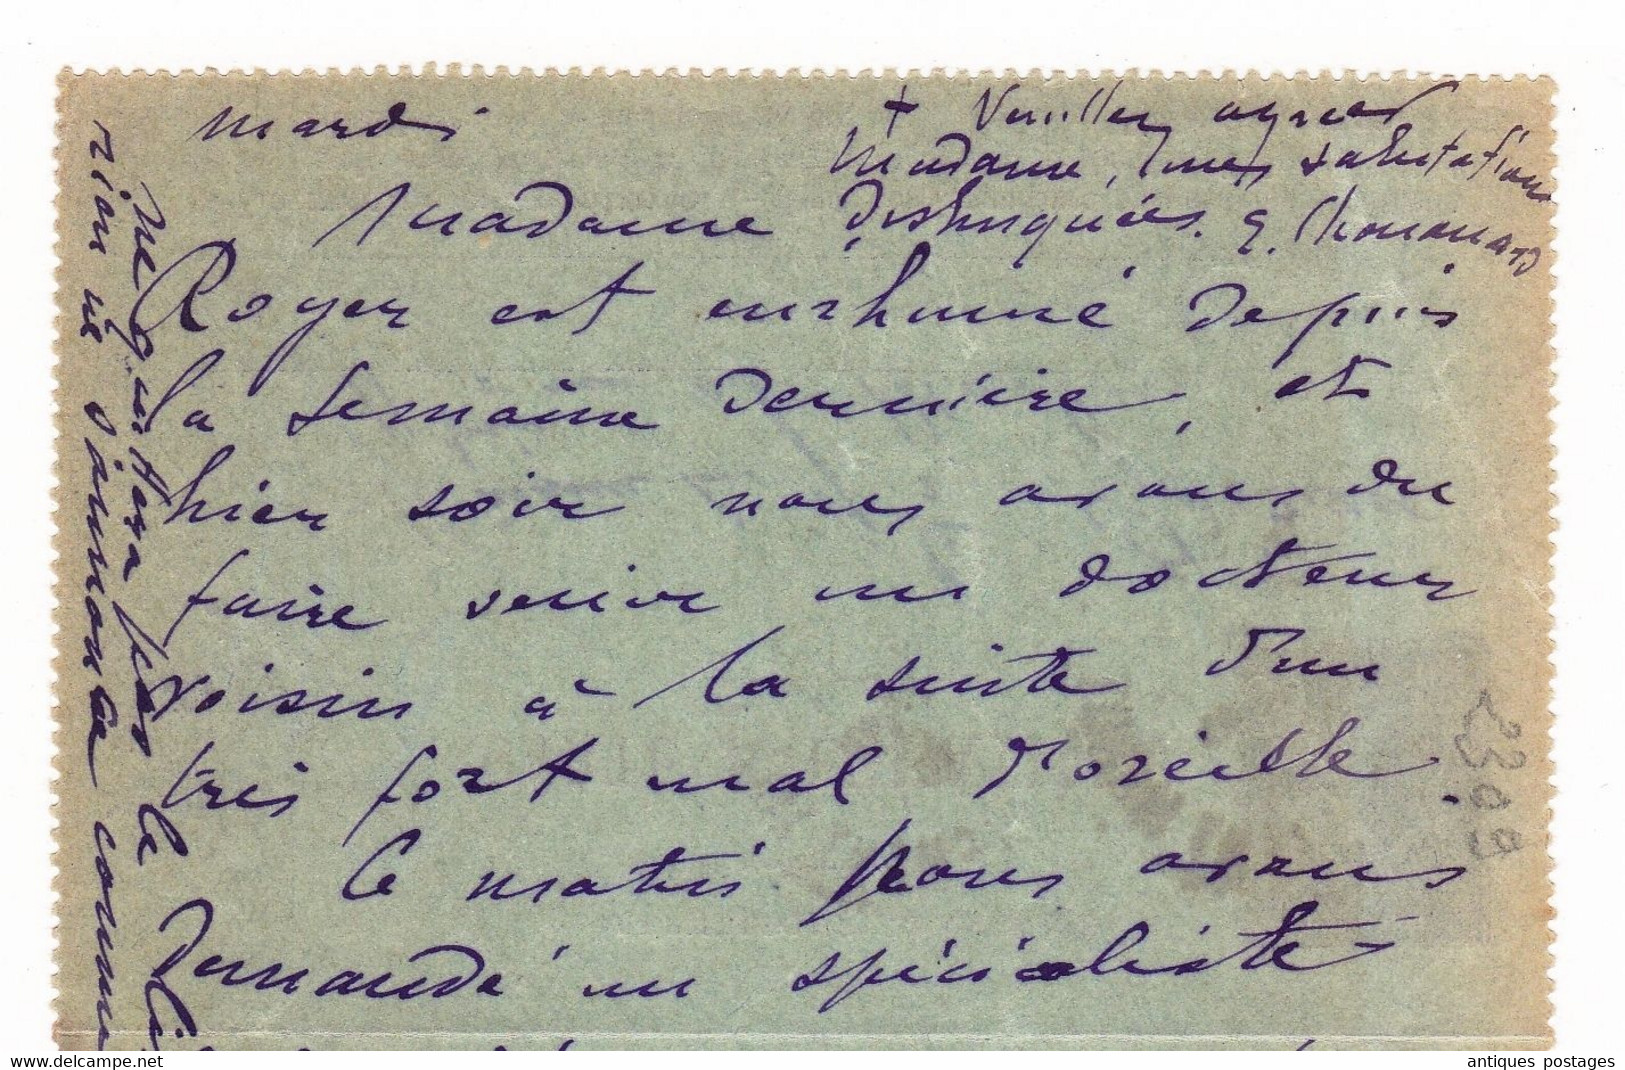 mardi
Madame
Roger est enrhumé depuis
la semaine dernière, et
hier soir nous avons du
faire venir un docteur
voisin à la suite d'un
très fort mal d'oreille.
Ce matin nous avons
demandé un spécialiste
+ Veuillez agréer
Madame, mes salutations
distinguées. E. Chouanard
ne quittera pas le
rion ni dimanche comm
2300
antiques postages
delcampe.net